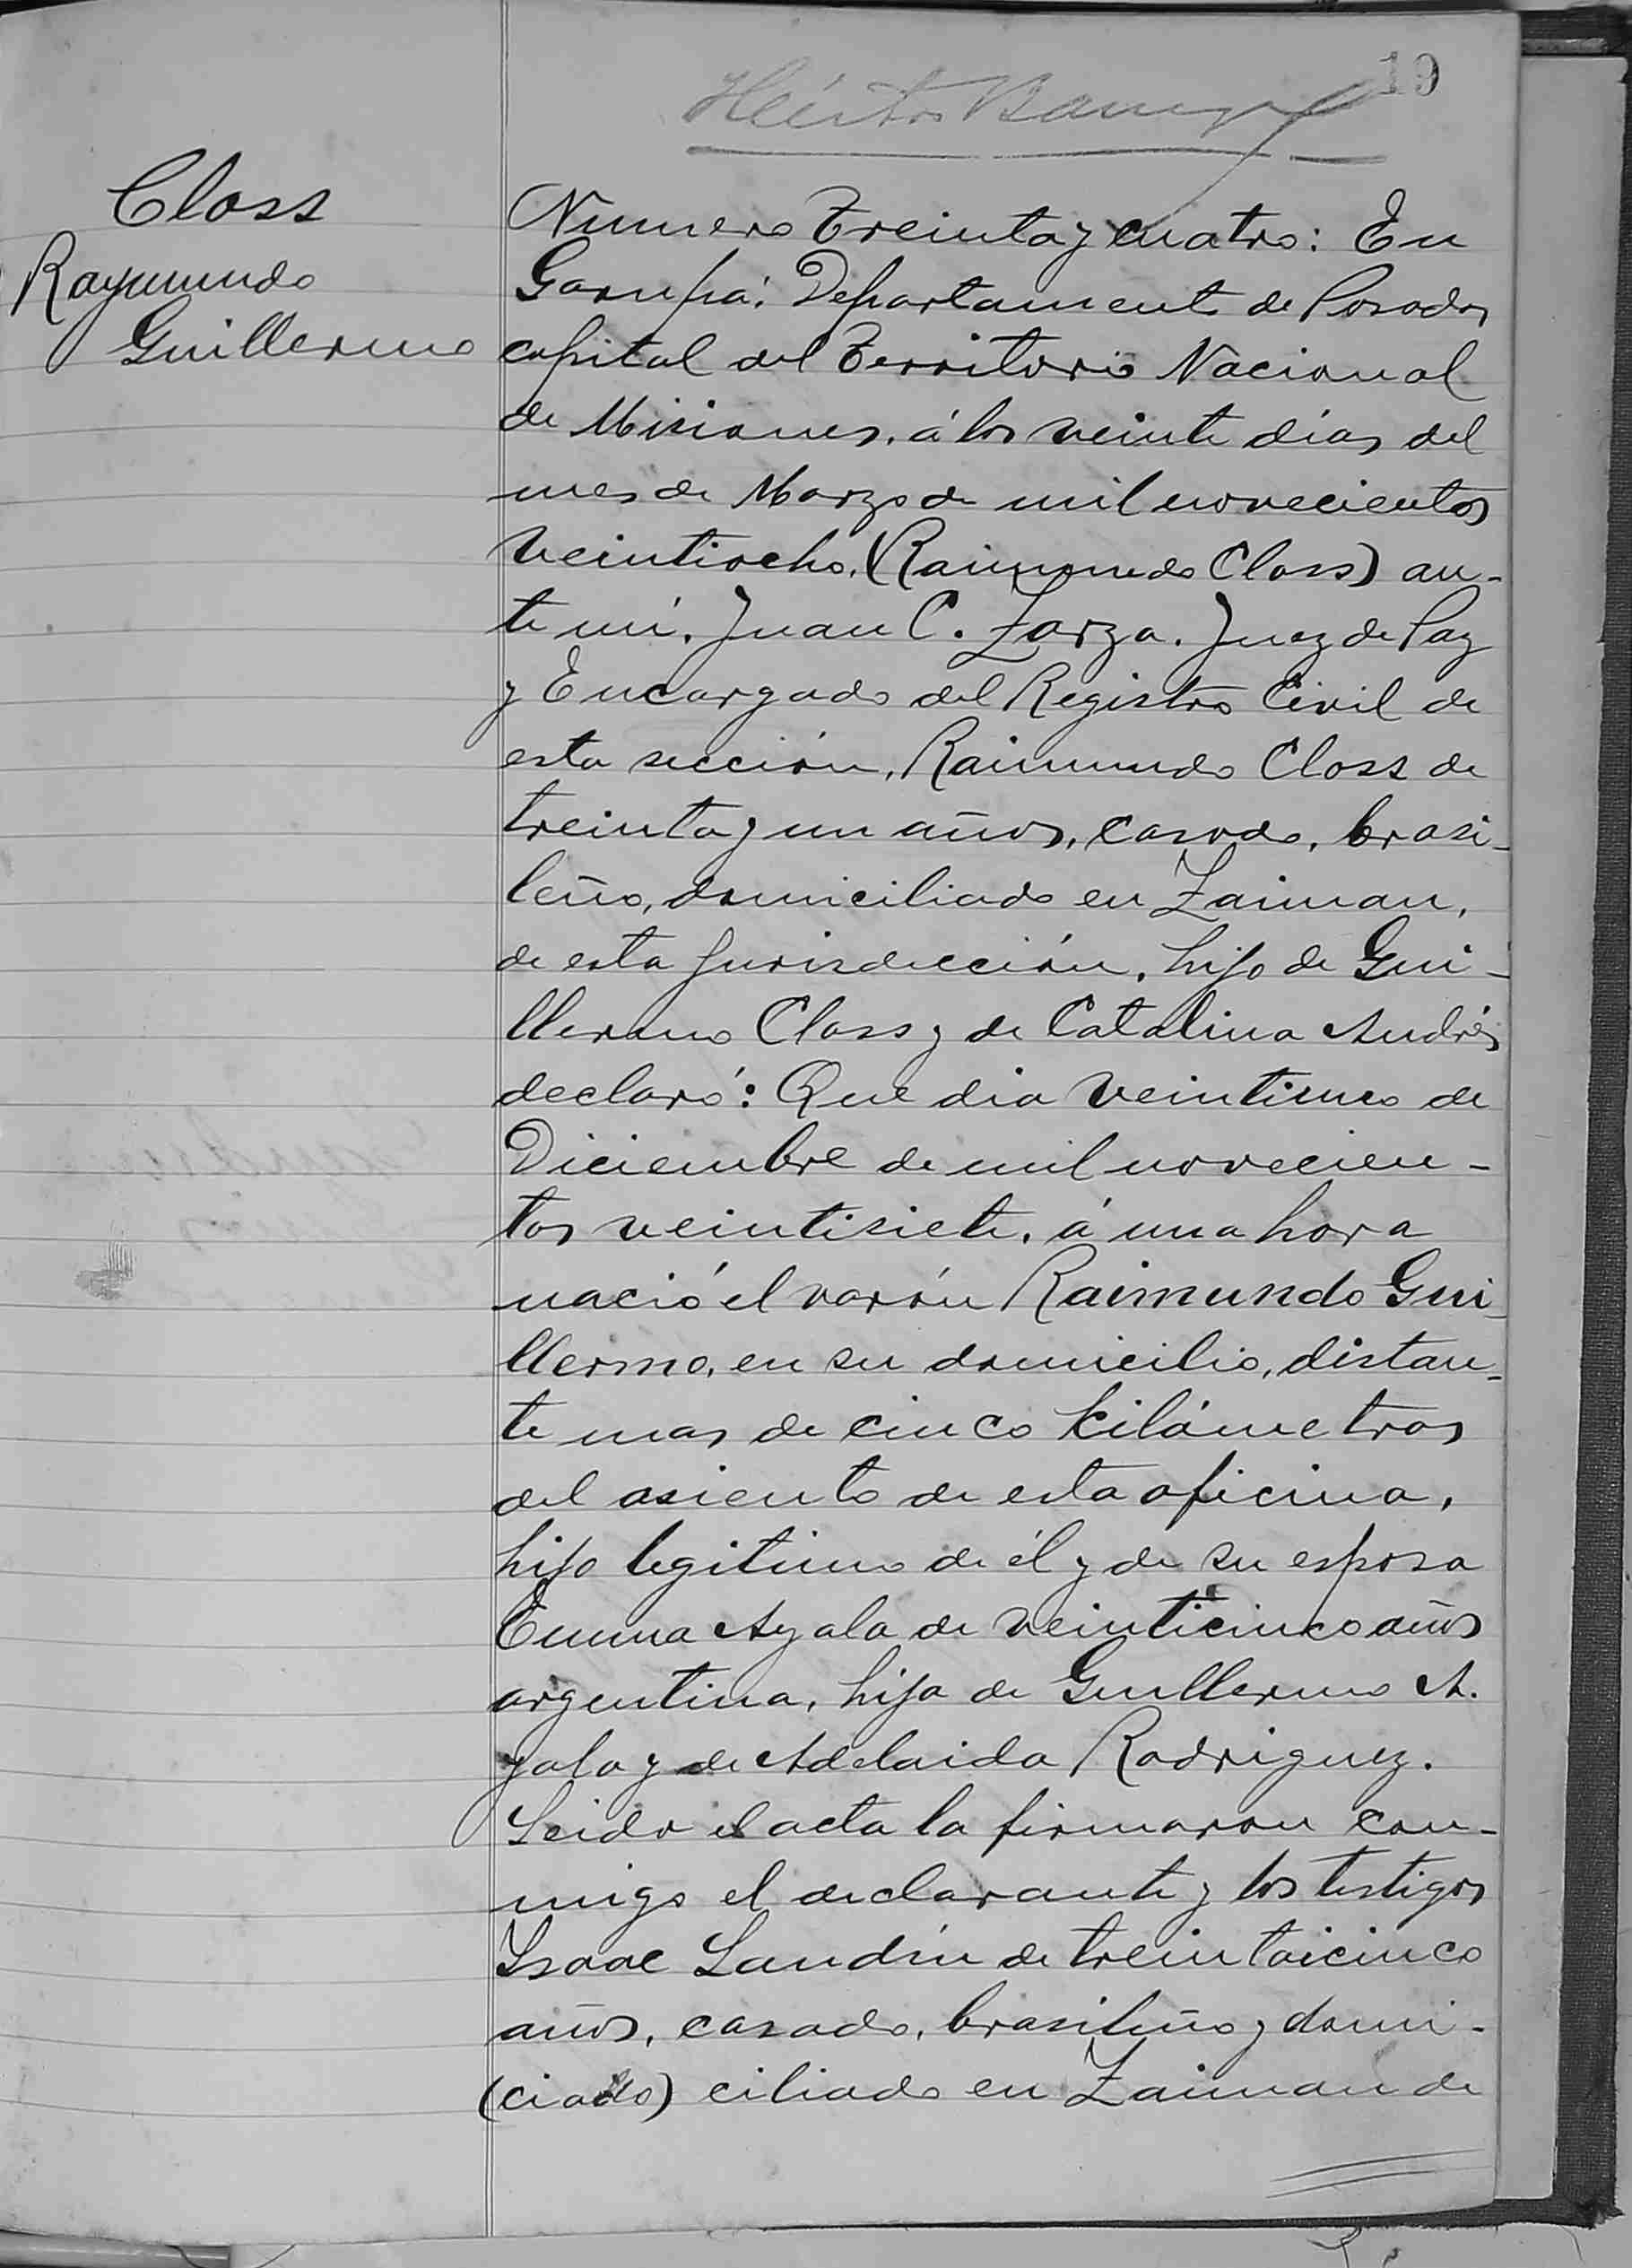 19
Closs
Raymundo
Guillermo
Numero treinta y cuatro: En
Garupá. Departamento de Posadas
capital del Territorio Nacional
de Misiones, á los veinte días del
mes de Marzo de mil novecientos
veintiocho, (Raimundo Closs) an-
te mí. Juan C. Zarza. Juez de Paz
y Encargado del Registro Civil de
esta sección, Raimundo Closs de
treinta y un años, casado, brasi-
leño, domiciliado en Zaiman,
de esta Jurisdicción, hijo de Gui-
llermo Closs y de Catalina Andrés
declaró: Que dia de
Diciembre de mil novecien-
tos veintisiete, á una hora
nació el varón Raimundo Gui-
llermo, en su domicilio, distan-
te mas de cinco kilómetros
del asiento de esta oficina,
hijo legitimo de él y de su esposa
Emma Ayala de veinticinco años
argentina, hija de Guillermo A.
yala y de Adelaida Rodriguez.
Leida el acta la firmaron con-
migo el declarante y los testigos
Isaac Landín de treintaicinco
años, casado, brasileño y domi-
(ciado) ciliado en Zaiman de